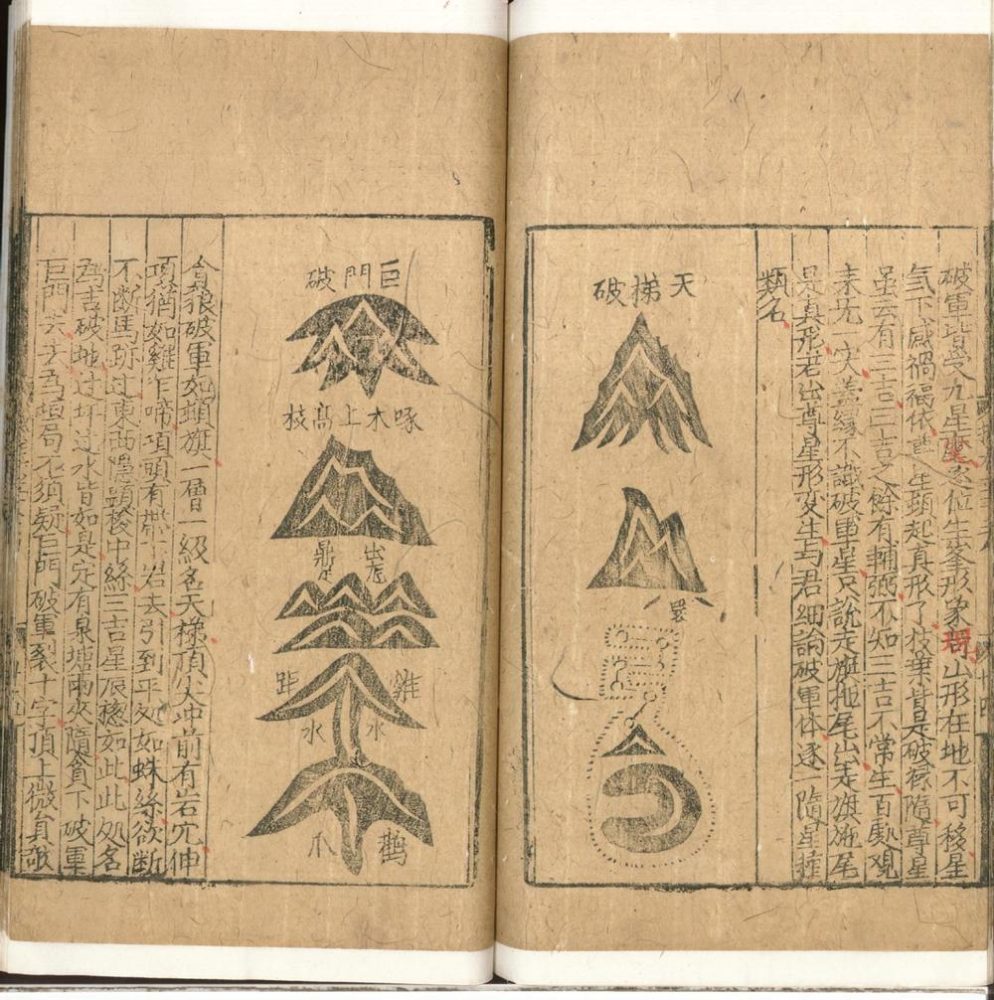 破軍皆受九星變逐位生峯形象現山形在地不可移星
气下感禍福依尊星頭起真形了枝葉皆是破祿隨尊星
虽云有三吉三吉之餘有輔弼不知三吉不常生百處覌
来无一实蓋縁不識破軍星只說走旗拖尾出走旗拖尾
是真形若出尊星形变生与君細論破軍体逐一隨星種
類名
天梯破
巨門破
啄木上高枝
鼎足
雞距
水水
鶴爪
貪狼破軍如頓旗一層一級名天梯頂尖冲前有岩穴伸
項猶如雞乍啼項頭有帶小岩去引到平处如蛛絲欲断
不断馬跡过東西隱顯梭中絲三吉星辰穩如此此処名
爲吉破地过坪过水皆如是定有泉塘兩夾隨貪下破軍
巨門去去爲垣局不須疑巨門破軍裂十字頂上微貟欹